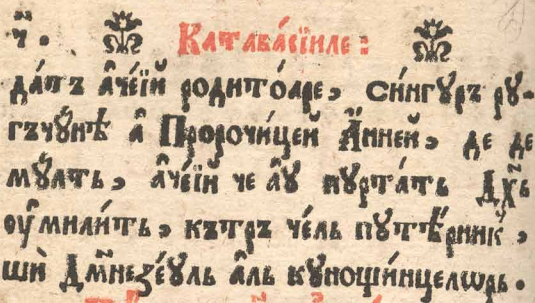 ч҃. Катава́сїиле:
да́тъ а҆че́їй родито́аре, си́нгꙋръ рꙋ-
гъчю́нѣ а҆ Проро́чицей А҆́нней, де де
мꙋ́лтъ, а҆че́їй че а҆ꙋ пꙋрта́тъ Дх҃ъ
оу҆мили́тъ, кътръ че́ль пꙋте́рникꙋ,
шѝ Дм҃незе́ꙋль а҆́ль кꙋнощи́нцелѡрь.